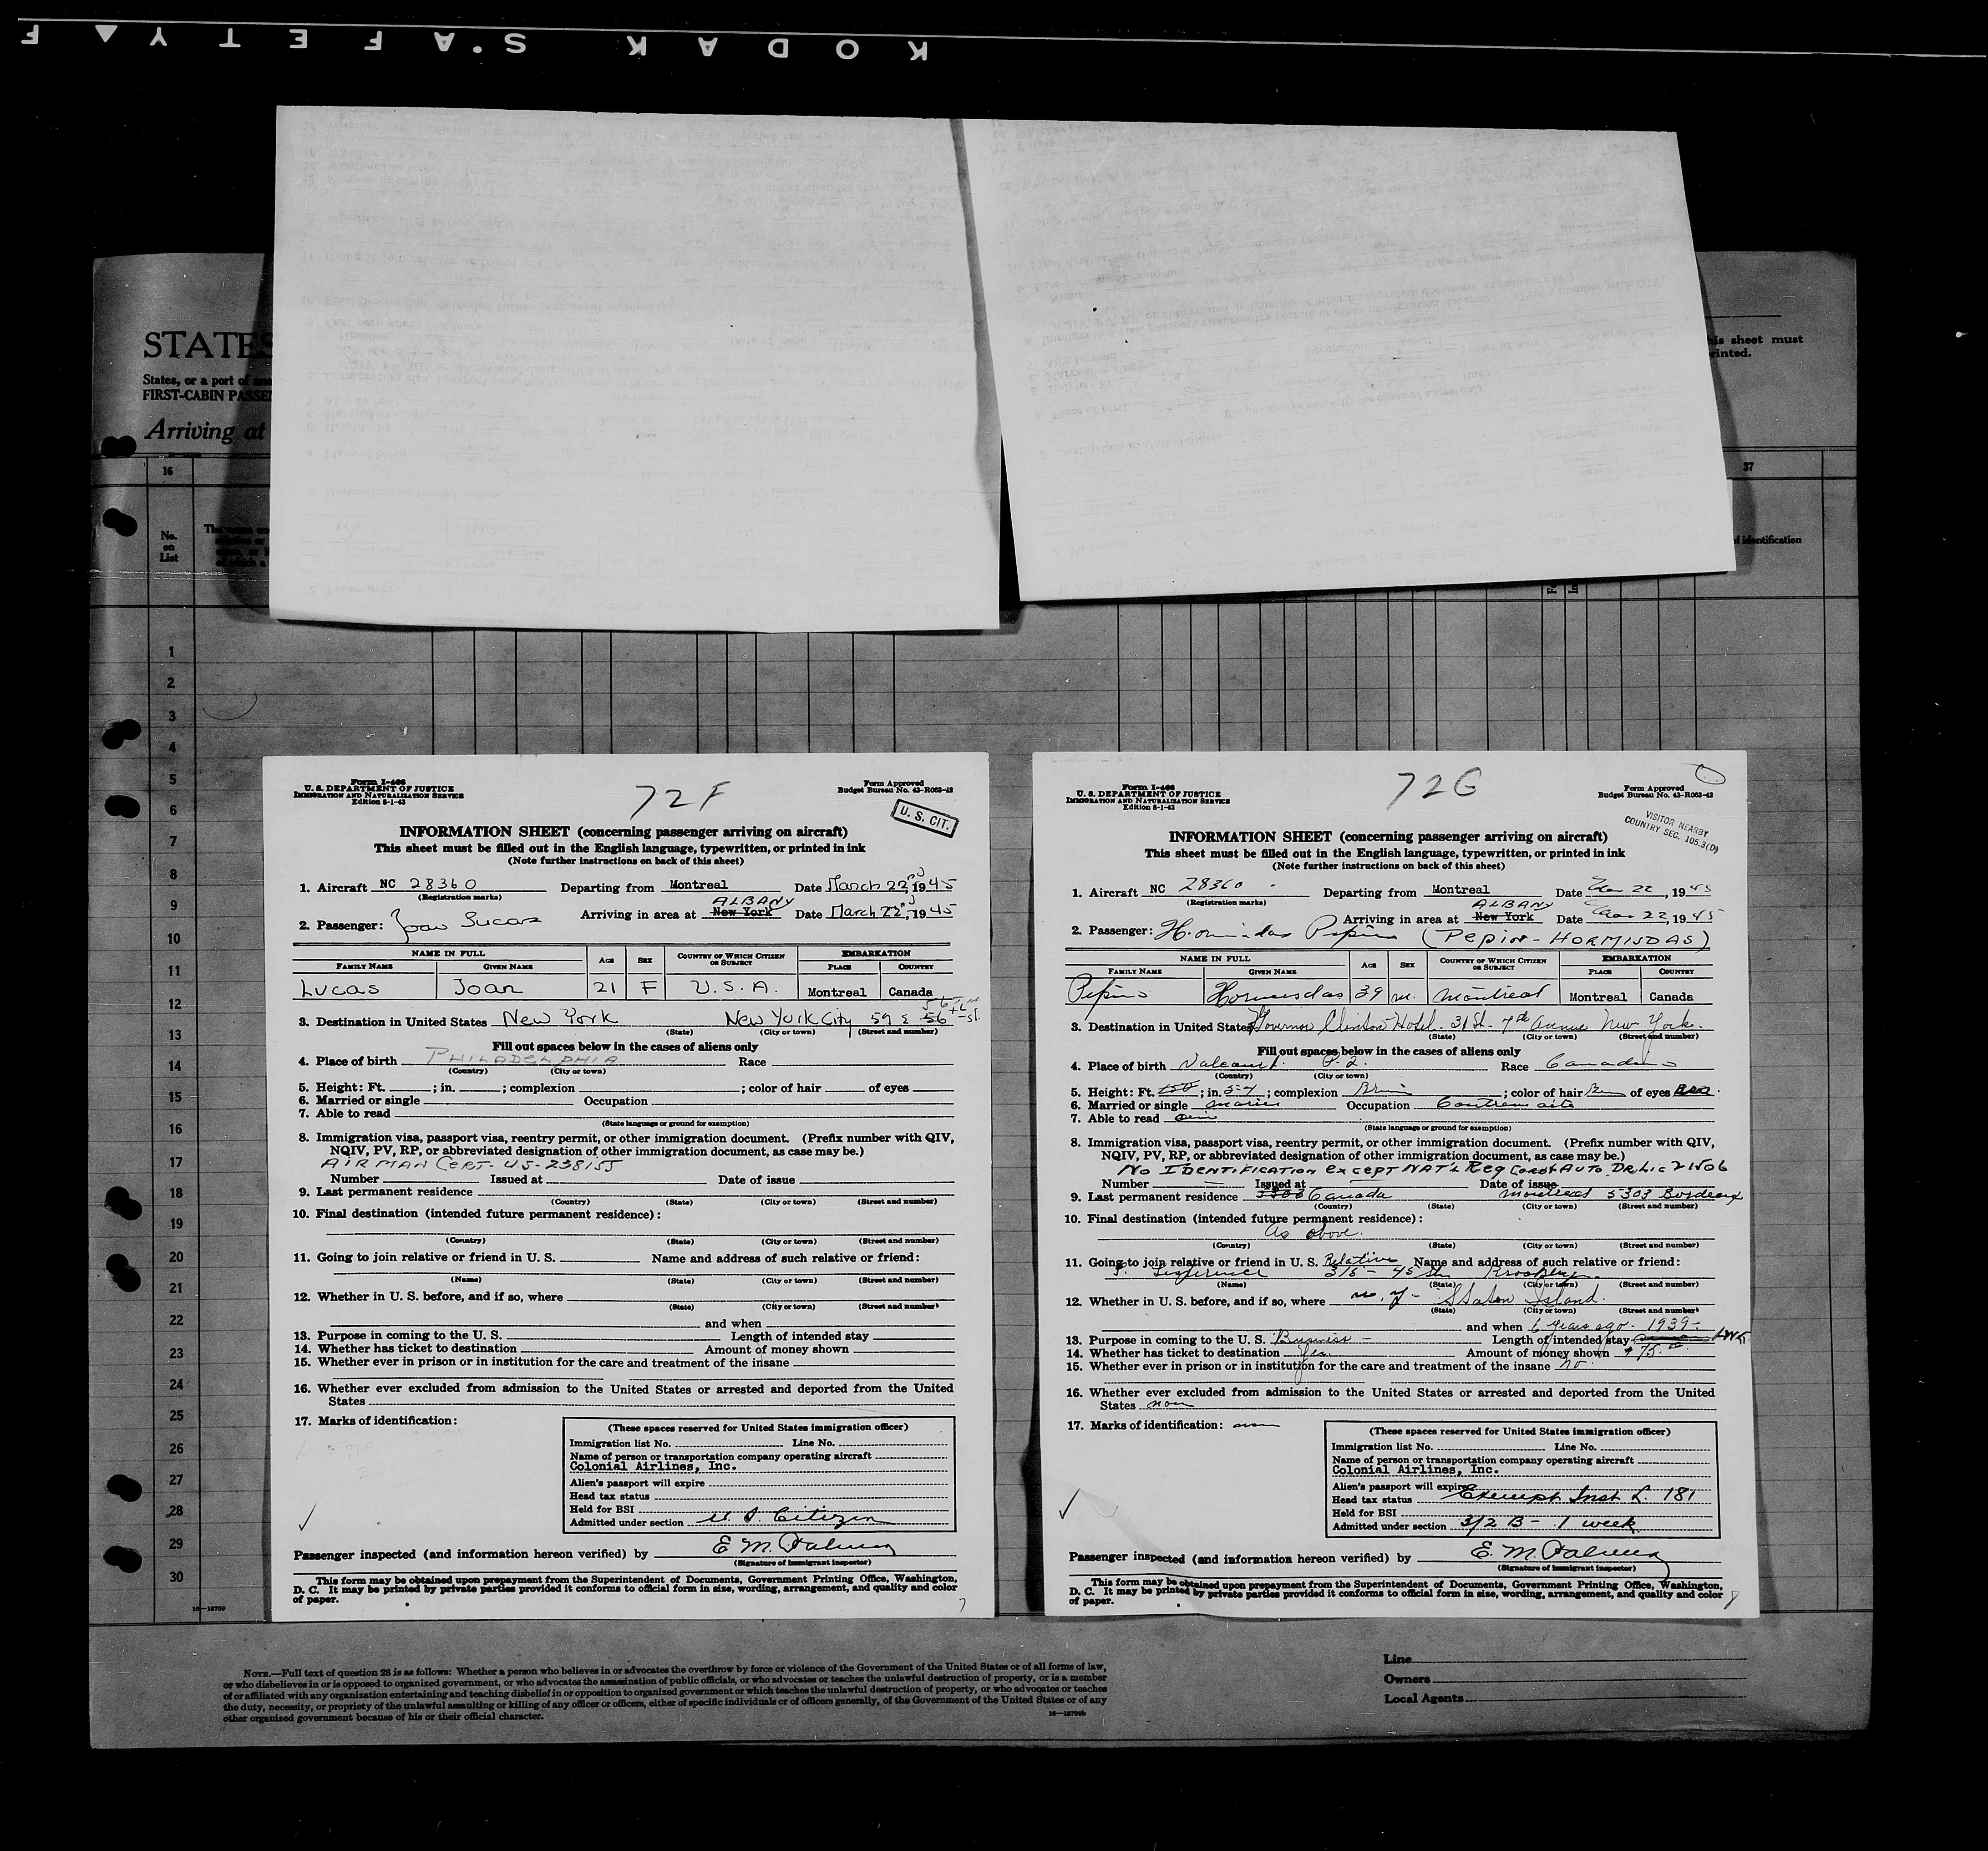 KODAK SAFETY ▲ F
STATES
States, or a port of
FIRST-CABIN PASSE
Arriving at
his sheet must
rinted.
16
37
No.
on
List
of identification
1
2
3
4
5
6
7
8
9
10
11
12
13
14
15
16
17
18
19
20
21
22
23
24
25
26
27
28
29
30
16—18709
Form I-466
U. S. DEPARTMENT OF JUSTICE
IMMIGRATION AND NATURALIZATION SERVICE
Edition 8-1-43
72F
Form Approved
Budget Bureau No. 43-R063-42
U. S. CIT.
INFORMATION SHEET (concerning passenger arriving on aircraft)
This sheet must be filled out in the English language, typewritten, or printed in ink
(Note further instructions on back of this sheet)
1. Aircraft NC 28360 Departing from Montreal Date March 22nd, 1945
(Registration marks)
ALBANY
Arriving in area at New York Date March 22nd, 1945
2. Passenger: Joan Lucas
NAME IN FULL AGE SEX COUNTRY OF WHICH CITIZEN OR SUBJECT EMBARKATION
FAMILY NAME GIVEN NAME PLACE COUNTRY
Lucas Joan 21 F U.S.A. Montreal Canada
3. Destination in United States New York New York City 59 E 56
(State) (City or town) (Street and number)
Fill out spaces below in the cases of aliens only
4. Place of birth PHILADELPHIA Race
(Country) (City or town)
5. Height: Ft. ; in. ; complexion ; color of hair of eyes
6. Married or single Occupation
7. Able to read
(State language or ground for exemption)
8. Immigration visa, passport visa, reentry permit, or other immigration document. (Prefix number with QIV,
NQIV, PV, RP, or abbreviated designation of other immigration document, as case may be.)
AIRMAN CERT- US-238155
Number Issued at Date of issue
9. Last permanent residence
(Country) (State) (City or town) (Street and number)
10. Final destination (intended future permanent residence):
(Country) (State) (City or town) (Street and number)
11. Going to join relative or friend in U. S. Name and address of such relative or friend:
(Name) (State) (City or town) (Street and number)
12. Whether in U. S. before, and if so, where
(State) (City or town) (Street and number)
and when
13. Purpose in coming to the U. S. Length of intended stay
14. Whether has ticket to destination Amount of money shown
15. Whether ever in prison or in institution for the care and treatment of the insane
16. Whether ever excluded from admission to the United States or arrested and deported from the United
States
17. Marks of identification:
(These spaces reserved for United States immigration officer)
Immigration list No. Line No.
Name of person or transportation company operating aircraft
Colonial Airlines, Inc.
Alien's passport will expire
Head tax status
Held for BSI
Admitted under section U. S. Citizen
Passenger inspected (and information hereon verified) by E M. Palmer
(Signature of immigrant inspector)
This form may be obtained upon prepayment from the Superintendent of Documents, Government Printing Office, Washington,
D. C. It may be printed by private parties provided it conforms to official form in size, wording, arrangement, and quality and color
of paper.
7
Form I-466
U. S. DEPARTMENT OF JUSTICE
IMMIGRATION AND NATURALIZATION SERVICE
Edition 8-1-43
72G
Form Approved
Budget Bureau No. 43-R063-42
VISITOR NEARBY
COUNTRY SEC. 105.3(D)
INFORMATION SHEET (concerning passenger arriving on aircraft)
This sheet must be filled out in the English language, typewritten, or printed in ink
(Note further instructions on back of this sheet)
1. Aircraft NC 28360 Departing from Montreal Date Mar 22, 1945
(Registration marks)
ALBANY
Arriving in area at New York Date Mar 22, 1945
2. Passenger: Hormisdas Pepin (PEPIN - HORMISDAS)
NAME IN FULL AGE SEX COUNTRY OF WHICH CITIZEN OR SUBJECT EMBARKATION
FAMILY NAME GIVEN NAME PLACE COUNTRY
Pepin Hormisdas 39 m. Montreal Montreal Canada
3. Destination in United States Governor Clinton Hotel - 31 St - 7th Avenue New York.
(State) (City or town) (Street and number)
Fill out spaces below in the cases of aliens only
4. Place of birth Valcourt P.2. Race Canadian
(Country) (City or town)
5. Height: Ft. ; in. 5-7 ; complexion Brun ; color of hair of eyes
6. Married or single Occupation
7. Able to read oui
(State language or ground for exemption)
8. Immigration visa, passport visa, reentry permit, or other immigration document. (Prefix number with QIV,
NQIV, PV, RP, or abbreviated designation of other immigration document, as case may be.)
No IDENTIFICATION except NAT'L Reg Card & AUTO. DR. Lic 21506
Number — Issued at — Date of issue
9. Last permanent residence Canada Montreal 5303 Bordeaux
(Country) (State) (City or town) (Street and number)
10. Final destination (intended future permanent residence):
As above.
(Country) (State) (City or town) (Street and number)
11. Going to join relative or friend in U. S. Relative Name and address of such relative or friend:
315 - 45 Brooklyn.
(Name) (State) (City or town) (Street and number)
12. Whether in U. S. before, and if so, where N.Y - Staten Island.
(State) (City or town) (Street and number)
and when 6 years ago - 1939-
13. Purpose in coming to the U. S. Business - Length of intended stay 1 WK
14. Whether has ticket to destination Yes. Amount of money shown $75.00
15. Whether ever in prison or in institution for the care and treatment of the insane no
16. Whether ever excluded from admission to the United States or arrested and deported from the United
States non
17. Marks of identification: non
(These spaces reserved for United States immigration officer)
Immigration list No. Line No.
Name of person or transportation company operating aircraft
Colonial Airlines, Inc.
Alien's passport will expire
Head tax status Exempt Inst L. 181
Held for BSI
Admitted under section 3/2 B - 1 week
Passenger inspected (and information hereon verified) by E. M. Palmer
(Signature of immigrant inspector)
This form may be obtained upon prepayment from the Superintendent of Documents, Government Printing Office, Washington,
D. C. It may be printed by private parties provided it conforms to official form in size, wording, arrangement, and quality and color
of paper.
8
NOTE.—Full text of question 28 is as follows: Whether a person who believes in or advocates the overthrow by force or violence of the Government of the United States or of all forms of law,
or who disbelieves in or is opposed to organized government, or who advocates the assassination of public officials, or who advocates or teaches the unlawful destruction of property, or is a member
of or affiliated with any organization entertaining and teaching disbelief in or opposition to organized government or which teaches the unlawful destruction of property, or who advocates or teaches
the duty, necessity, or propriety of the unlawful assaulting or killing of any officer or officers, either of specific individuals or of officers generally, of the Government of the United States or of any
other organized government because of his or their official character.
16—18709b
Line
Owners
Local Agents